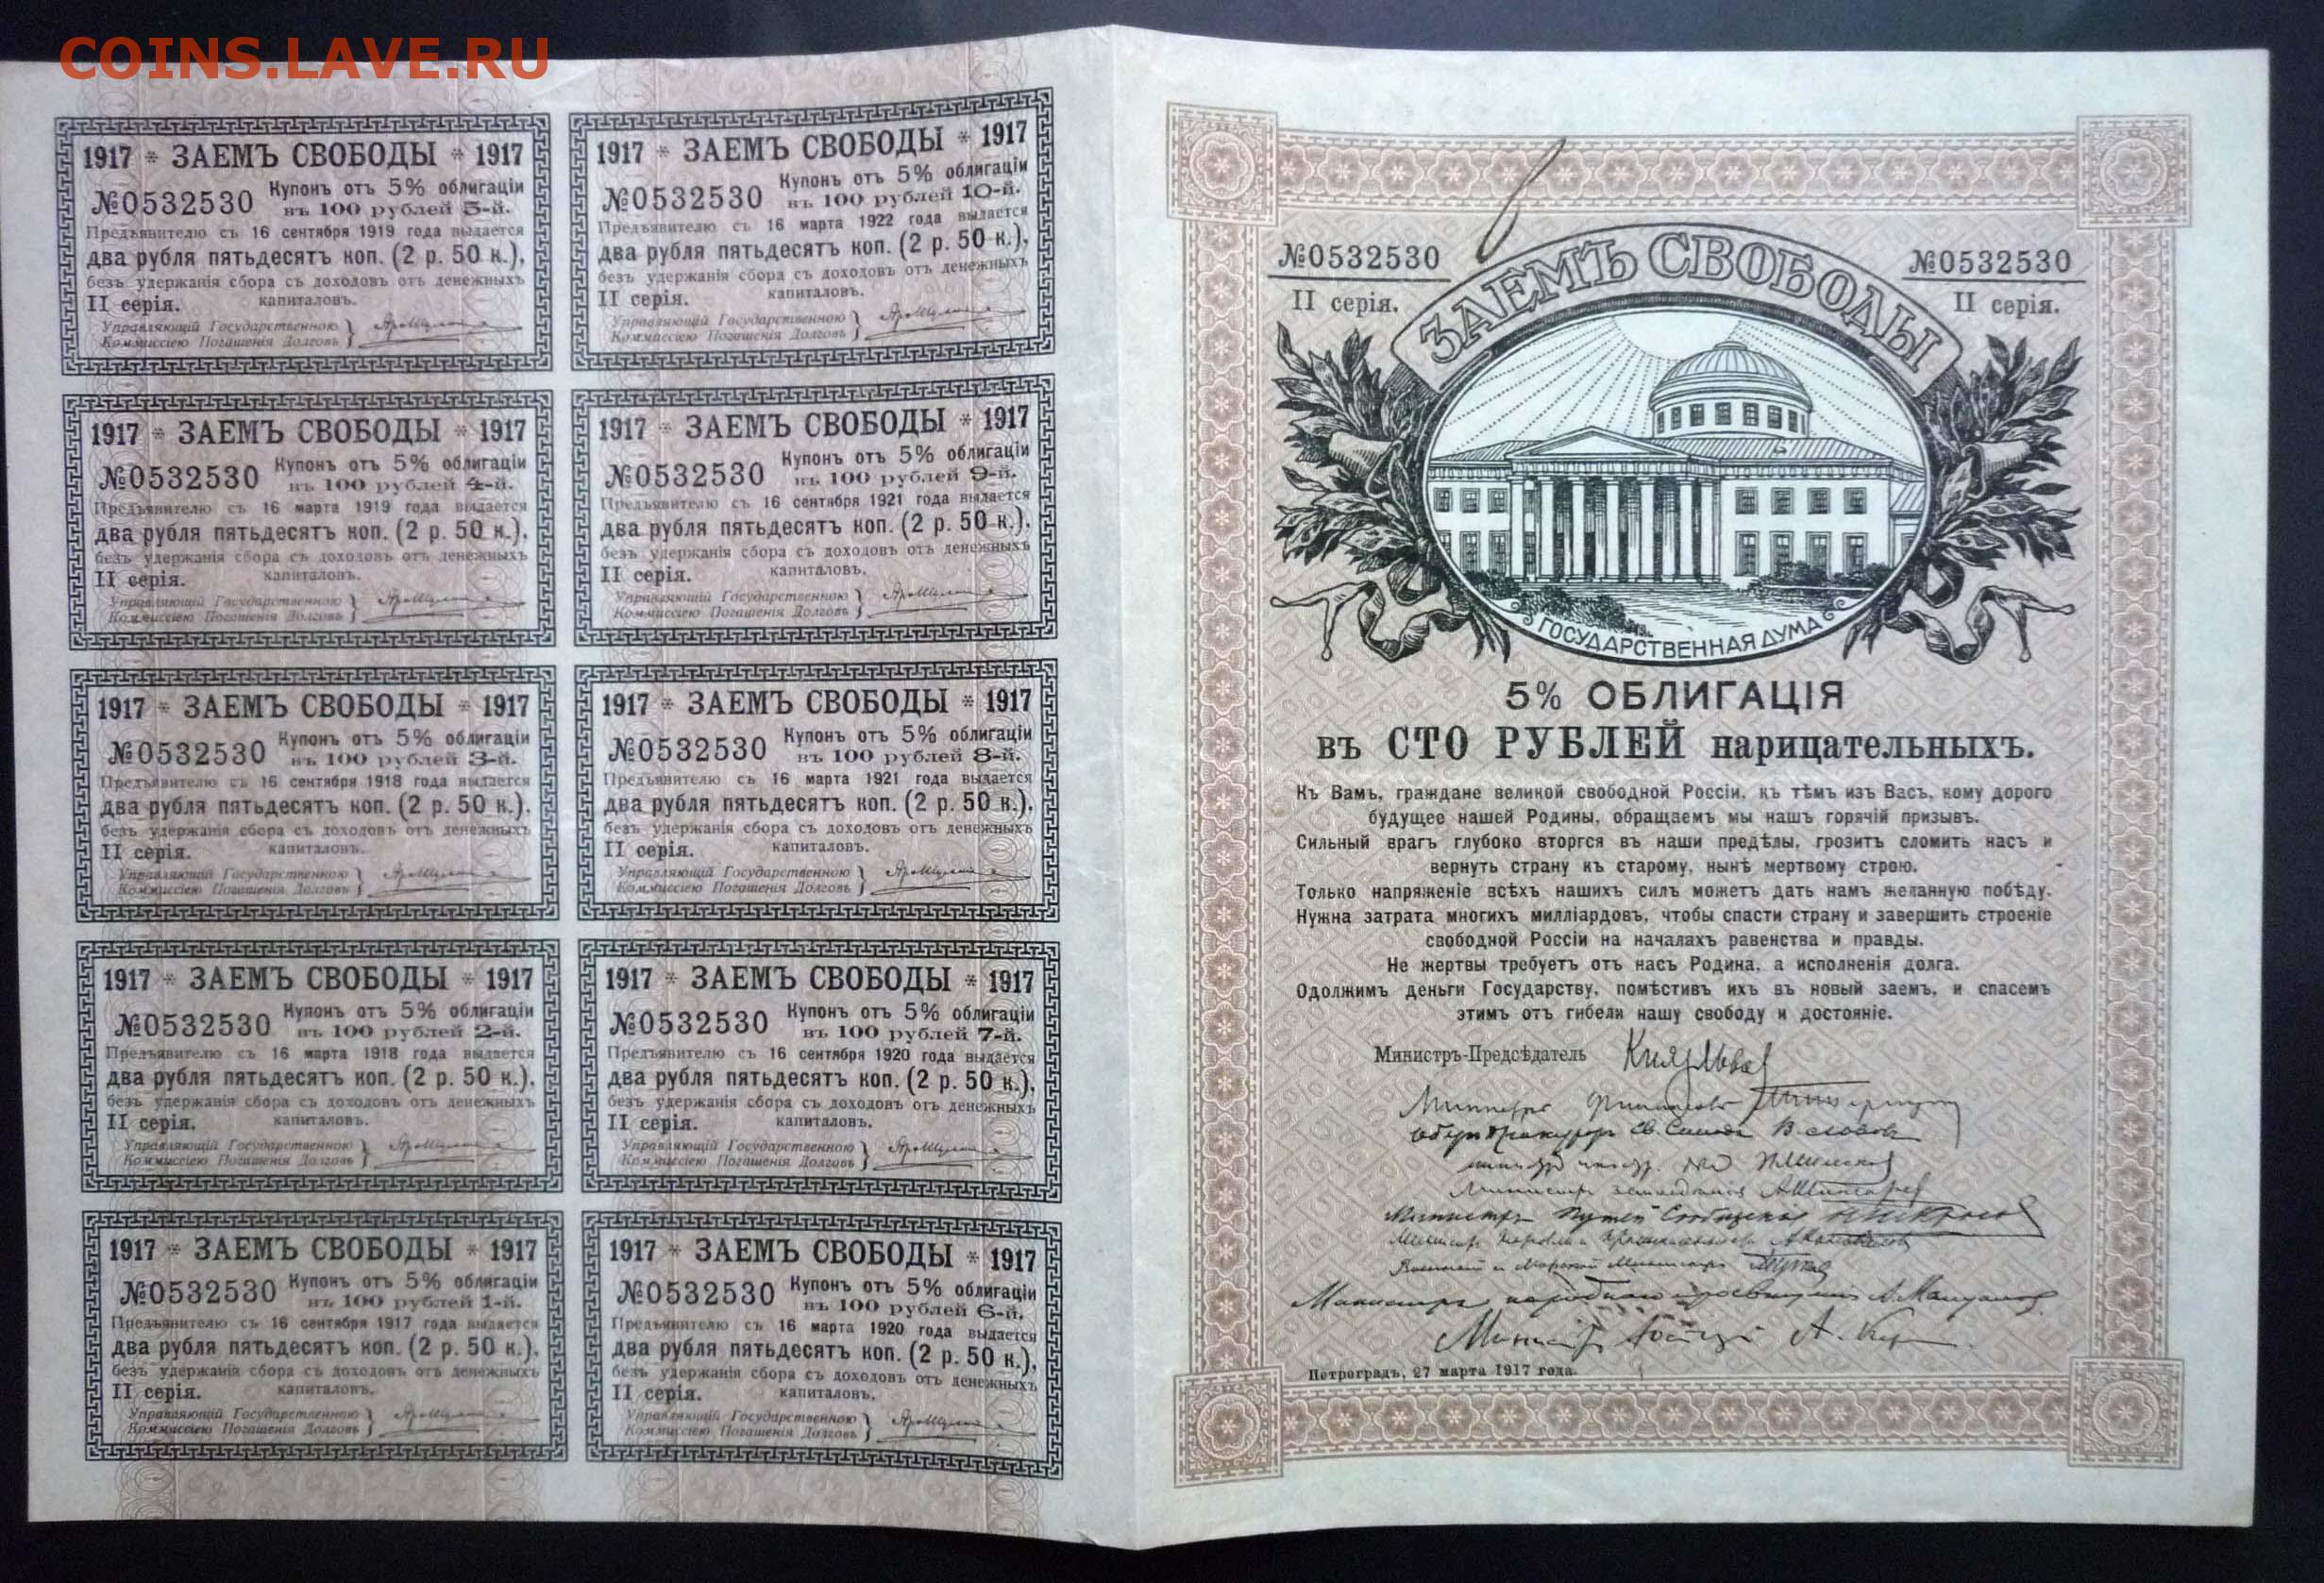 COINS.LAVE.RU
1917 * ЗАЕМЪ СВОБОДЫ * 1917
№0532530 Купонъ отъ 5% облигаціи
въ 100 рублей 5-й.
Предъявителю съ 16 сентября 1919 года выдается
два рубля пятьдесятъ коп. (2 р. 50 к.),
безъ удержанія сбора съ доходовъ отъ денежныхъ
II серія. капиталовъ.
Управляющій Государственною
Коммиссіею Погашенія Долговъ
1917 * ЗАЕМЪ СВОБОДЫ * 1917
№0532530 Купонъ отъ 5% облигаціи
въ 100 рублей 4-й.
Предъявителю съ 16 марта 1919 года выдается
два рубля пятьдесятъ коп. (2 р. 50 к.),
безъ удержанія сбора съ доходовъ отъ денежныхъ
II серія. капиталовъ.
Управляющій Государственною
Коммиссіею Погашенія Долговъ
1917 * ЗАЕМЪ СВОБОДЫ * 1917
№0532530 Купонъ отъ 5% облигаціи
въ 100 рублей 3-й.
Предъявителю съ 16 сентября 1918 года выдается
два рубля пятьдесятъ коп. (2 р. 50 к.),
безъ удержанія сбора съ доходовъ отъ денежныхъ
II серія. капиталовъ.
Управляющій Государственною
Коммиссіею Погашенія Долговъ
1917 * ЗАЕМЪ СВОБОДЫ * 1917
№0532530 Купонъ отъ 5% облигаціи
въ 100 рублей 2-й.
Предъявителю съ 16 марта 1918 года выдается
два рубля пятьдесятъ коп. (2 р. 50 к.),
безъ удержанія сбора съ доходовъ отъ денежныхъ
II серія. капиталовъ.
Управляющій Государственною
Коммиссіею Погашенія Долговъ
1917 * ЗАЕМЪ СВОБОДЫ * 1917
№0532530 Купонъ отъ 5% облигаціи
въ 100 рублей 1-й.
Предъявителю съ 16 сентября 1917 года выдается
два рубля пятьдесятъ коп. (2 р. 50 к.),
безъ удержанія сбора съ доходовъ отъ денежныхъ
II серія. капиталовъ.
Управляющій Государственною
Коммиссіею Погашенія Долговъ
1917 * ЗАЕМЪ СВОБОДЫ * 1917
№0532530 Купонъ отъ 5% облигаціи
въ 100 рублей 10-й.
Предъявителю съ 16 марта 1922 года выдается
два рубля пятьдесятъ коп. (2 р. 50 к.),
безъ удержанія сбора съ доходовъ отъ денежныхъ
II серія. капиталовъ.
Управляющій Государственною
Коммиссіею Погашенія Долговъ
1917 * ЗАЕМЪ СВОБОДЫ * 1917
№0532530 Купонъ отъ 5% облигаціи
въ 100 рублей 9-й.
Предъявителю съ 16 сентября 1921 года выдается
два рубля пятьдесятъ коп. (2 р. 50 к.),
безъ удержанія сбора съ доходовъ отъ денежныхъ
II серія. капиталовъ.
Управляющій Государственною
Коммиссіею Погашенія Долговъ
1917 * ЗАЕМЪ СВОБОДЫ * 1917
№0532530 Купонъ отъ 5% облигаціи
въ 100 рублей 8-й.
Предъявителю съ 16 марта 1921 года выдается
два рубля пятьдесятъ коп. (2 р. 50 к.),
безъ удержанія сбора съ доходовъ отъ денежныхъ
II серія. капиталовъ.
Управляющій Государственною
Коммиссіею Погашенія Долговъ
1917 * ЗАЕМЪ СВОБОДЫ * 1917
№0532530 Купонъ отъ 5% облигаціи
въ 100 рублей 7-й.
Предъявителю съ 16 сентября 1920 года выдается
два рубля пятьдесятъ коп. (2 р. 50 к.),
безъ удержанія сбора съ доходовъ отъ денежныхъ
II серія. капиталовъ.
Управляющій Государственною
Коммиссіею Погашенія Долговъ
1917 * ЗАЕМЪ СВОБОДЫ * 1917
№0532530 Купонъ отъ 5% облигаціи
въ 100 рублей 6-й.
Предъявителю съ 16 марта 1920 года выдается
два рубля пятьдесятъ коп. (2 р. 50 к.),
безъ удержанія сбора съ доходовъ отъ денежныхъ
II серія. капиталовъ.
Управляющій Государственною
Коммиссіею Погашенія Долговъ
№0532530 №0532530
II серія. II серія.
ЗАЕМЪ СВОБОДЫ
ГОСУДАРСТВЕННАЯ ДУМА
5% ОБЛИГАЦІЯ
въ СТО РУБЛЕЙ нарицательныхъ.
Къ Вамъ, граждане великой свободной Россіи, къ тѣмъ изъ Васъ, кому дорого
будущее нашей Родины, обращаемъ мы нашъ горячій призывъ.
Сильный врагъ глубоко вторгся въ наши предѣлы, грозитъ сломить насъ и
вернуть страну къ старому, нынѣ мертвому строю.
Только напряженіе всѣхъ нашихъ силъ можетъ дать намъ желанную побѣду.
Нужна затрата многихъ милліардовъ, чтобы спасти страну и завершить строеніе
свободной Россіи на началахъ равенства и правды.
Не жертвы требуетъ отъ насъ Родина, а исполненія долга.
Одолжимъ деньги Государству, помѣстивъ ихъ въ новый заемъ, и спасемъ
этимъ отъ гибели нашу свободу и достояніе.
Министръ-Предсѣдатель Князь Львов
Министръ Финансовъ
Оберъ Прокуроръ Св. Синода В Львов
Министръ земледѣлія А Шингарев
Министръ Путей Сообщенія Н Некрасов
Министръ А Коновалов
Военный и Морской Министръ
Министръ народного просвѣщенія А. Мануйлов
Министръ Юстиціи А. Кер
Петроградъ, 27 марта 1917 года.